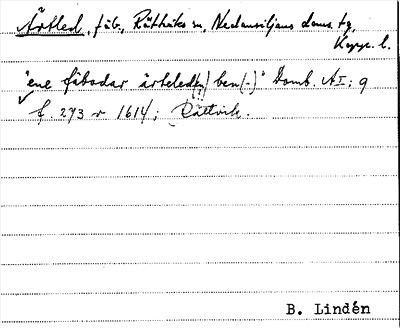 Ärtled, fäb., Rättviks sn, Nedansiljans doms. tg,
Kopp. l.
'ene fäbodar ärteled(?) ben(-)' Domb. AI: 9
f. 273 v 1614; Rättvik.
B. Lindén